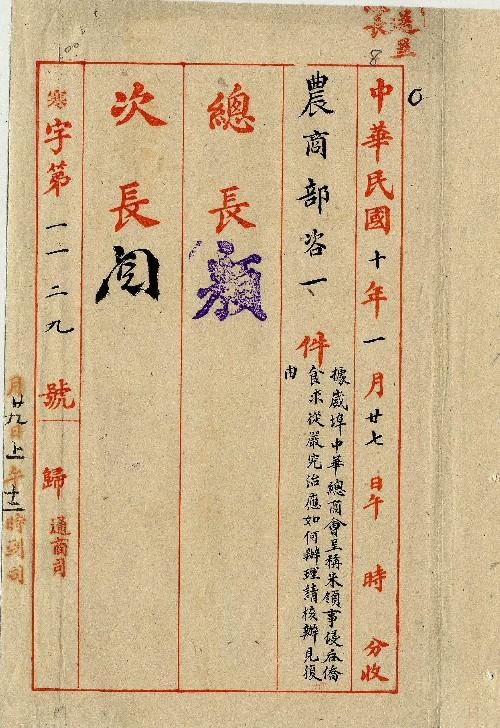 逕呈
長
8
中華民國十年一月廿七日午 時 分收
農商部咨一件
據威埠中華總商會呈稱米領事侵在僑
食求從嚴究治應如何辦理請核辦見復
由
總長 顏
次長
寒字第一一二九號 歸通商司
月廿九日上午十二時到司